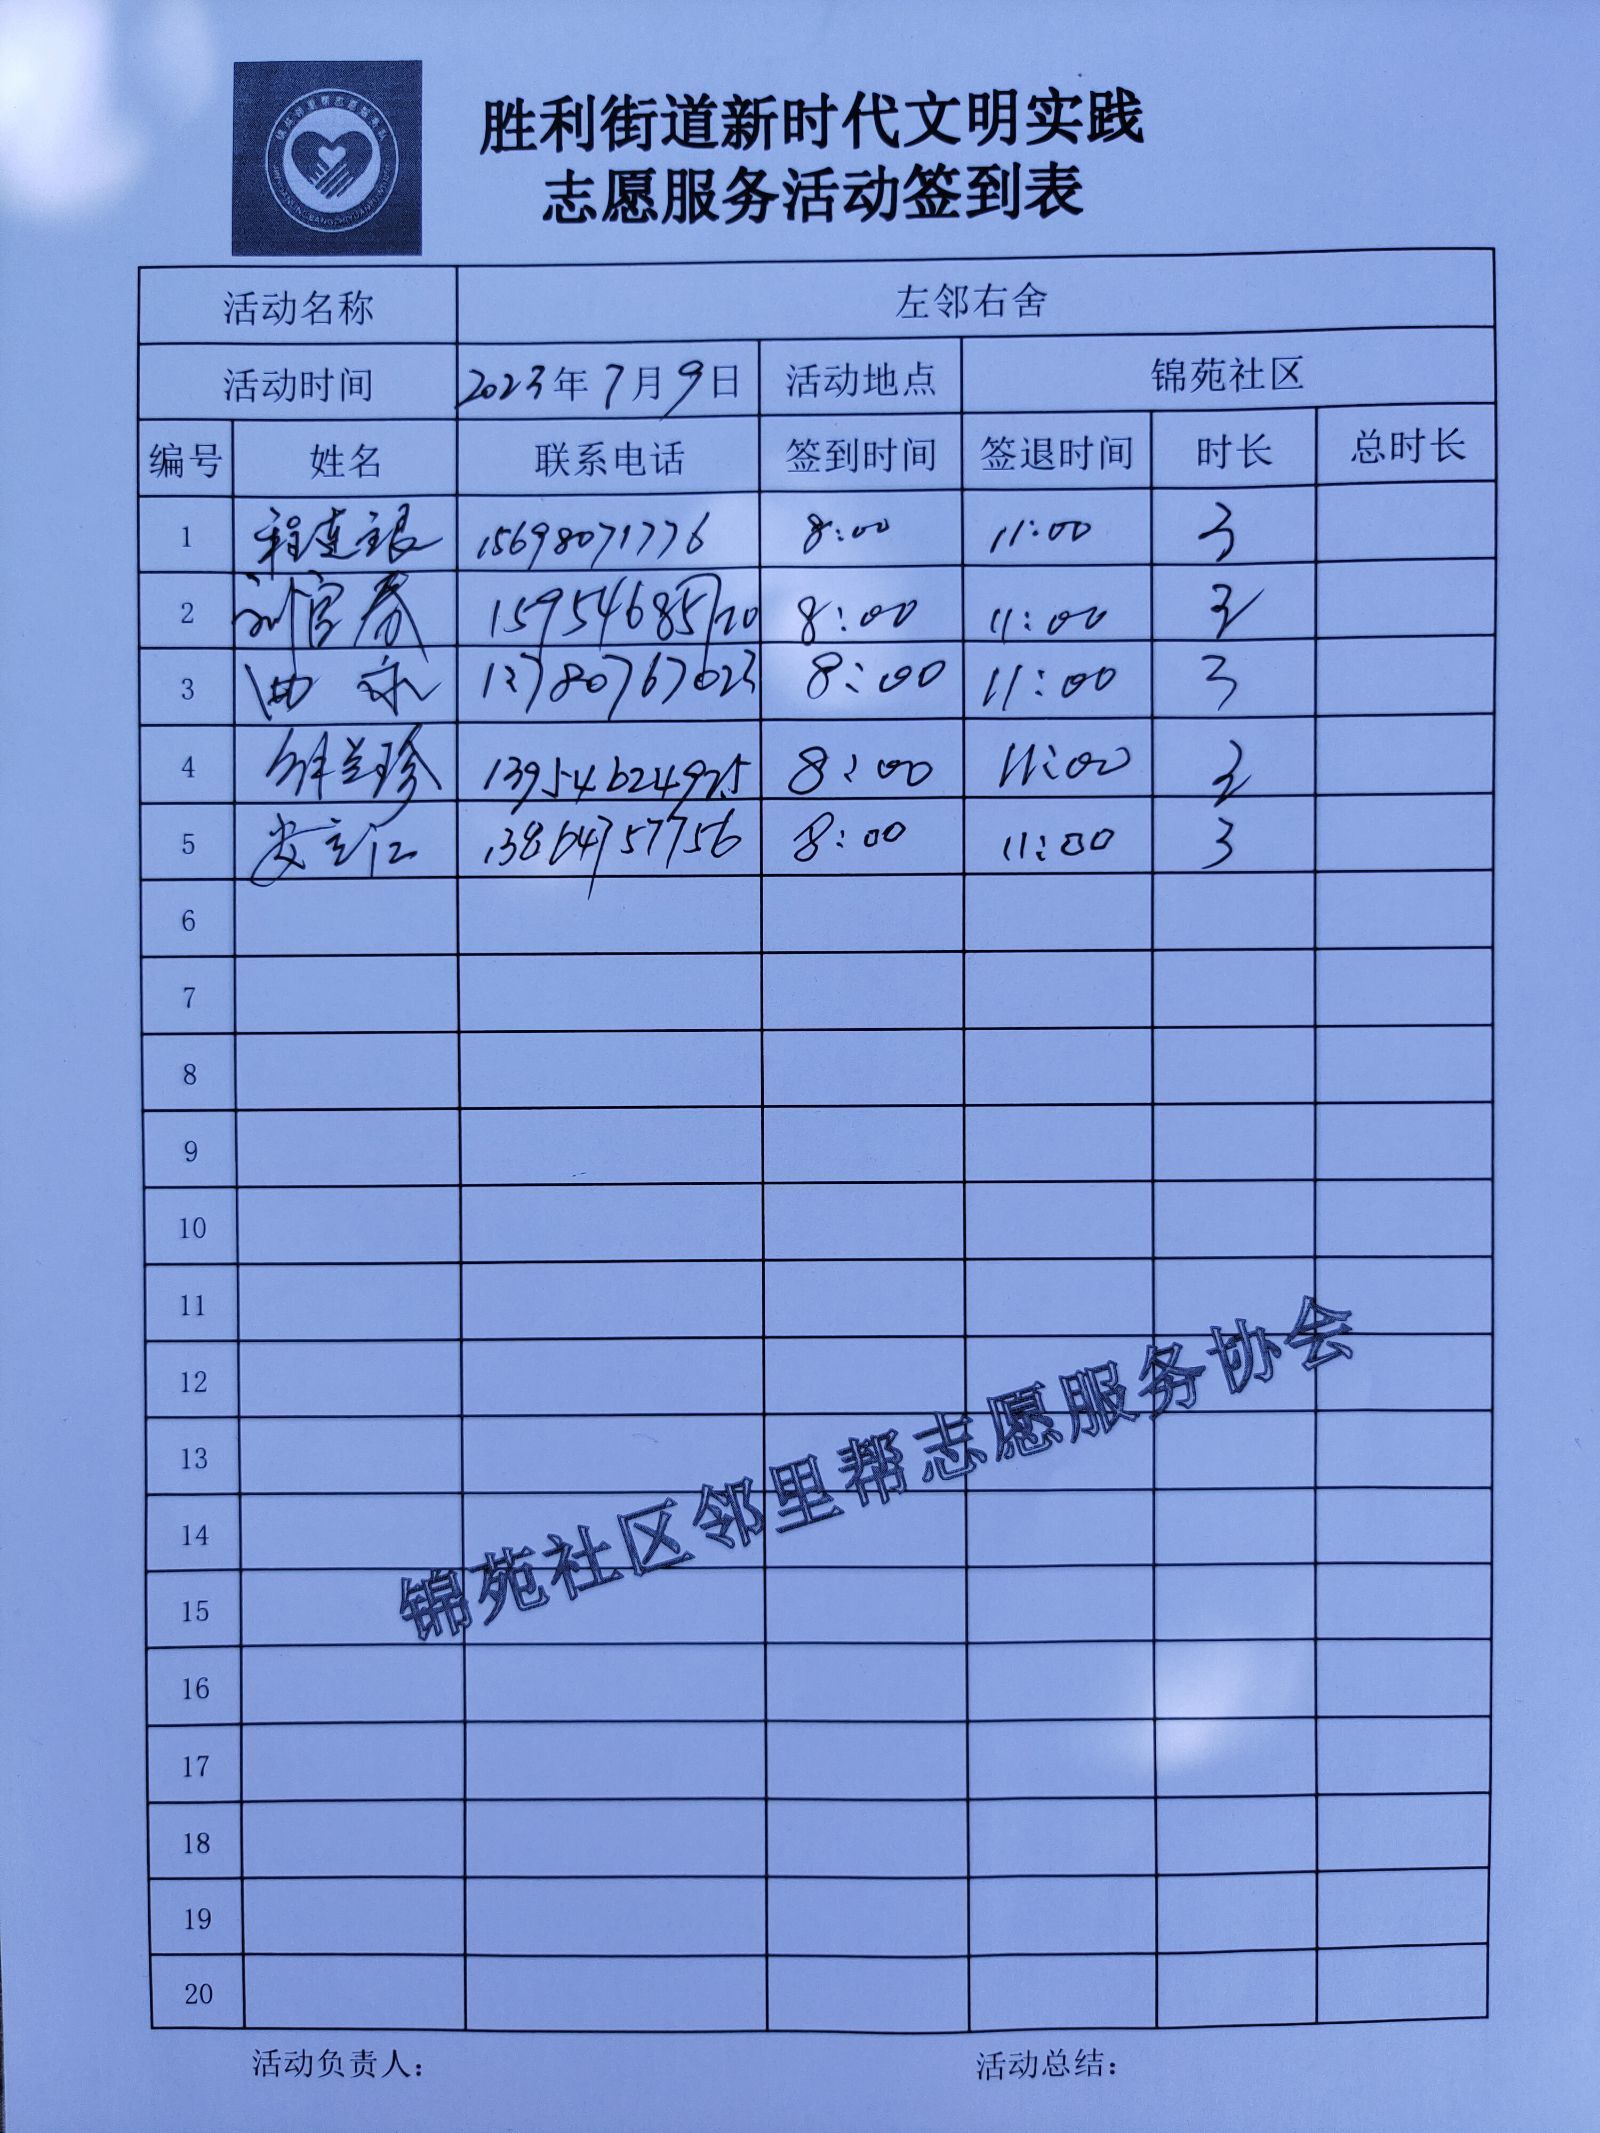 胜利街道新时代文明实践
志愿服务活动签到表
活动名称 左邻右舍
活动时间 2023年7月9日 活动地点 锦苑社区
编号 姓名 联系电话 签到时间 签退时间 时长 总时长
1 程连银 15698071776 8:00 11:00 3
2 刘官春 15954685120 8:00 11:00 3
3 曲 永 13780767023 8:00 11:00 3
4 兰珍 13954624925 8:00 11:00 3
5 立江 13864757756 8:00 11:00 3
6
7
8
9
10
11
12
13
14
15
16
17
18
19
20
锦苑社区邻里帮志愿服务协会
活动负责人: 活动总结: